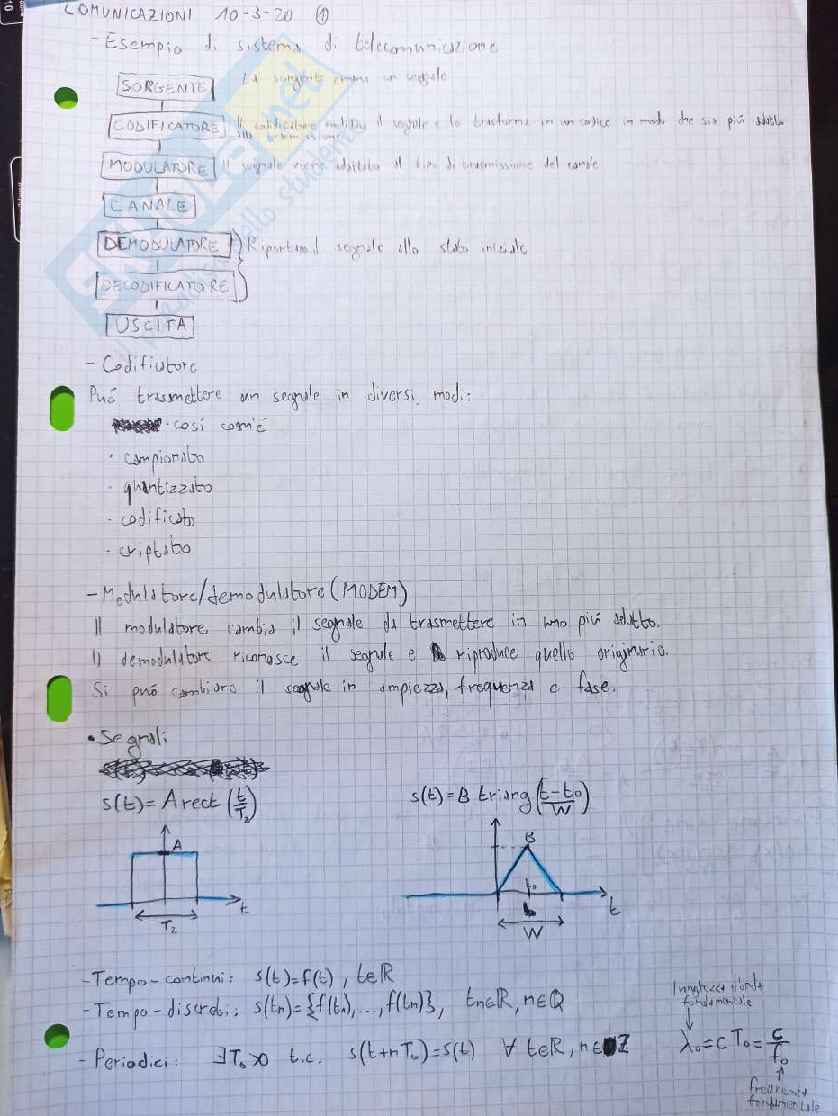 COMUNICAZIONI 10-3-20 ①
- Esempio di sistema di telecomunicazione
SORGENTE La sorgente emana un segnale
CODIFICATORE Il codificatore il segnale e lo trasforma in un codice in modo che sia più adatto
MODULATORE Il segnale viene adattato al tipo di trasmissione del canale
CANALE
DEMODULATORE Riportano il segnale allo stato iniziale
DECODIFICATORE
USCITA
- Codificatore
Puó trasmettere un segnale in diversi modi:
· cosí com'é
· campionato
· quantizzato
· codificato
· criptato
- Modulatore/demodulatore (MODEM)
Il modulatore cambia il segnale da trasmettere in uno piú adatto.
Il demodulatore riconosce il segnale e riproduce quello originario.
Si puó cambiare il segnale in ampiezza, frequenza e fase.
• Segnali
s(t)= A rect (t/T₂) s(t)= B triang (t-t₀/W)
A B
t₀
t t
T₂ W
- Tempo-continui: s(t)=f(t), t∈ℝ
- Tempo-discreti: s(tn)={f(t₁),...,f(tn)}, tn∈ℝ, n∈ℚ
lunghezza d'onda
fondamentale
- Periodici: ∃T₀>0 t.c. s(t+nT₀)=s(t) ∀ t∈ℝ, n∈ℤ λ₀=c T₀=c/f₀
frequenza
fondamentale